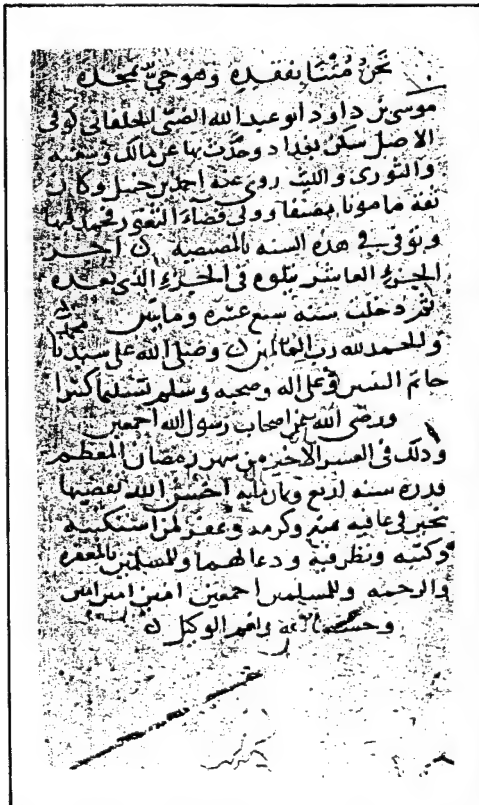 نحن متنا بفقده وهو حي بمجده
موسى بن داود ابو عبد الله الضبي الخلقاني كوفي
الاصل سكن بغداد وحدث بها عن مالك وشعبة
والثوري والليث روى عنه احمد بن حنبل وكان
ثقة مامونا مصنفا وولي قضاء الثغور فحمد فيها
وتوفي في هذه السنه بالمصيصه اخر
الجزء العاشر يتلوه في الجزء الذي بعده
ثم دخلت سنة سبع عشره ومايتين
والحمد لله رب العالمين وصلى الله على سيدنا
خاتم النبيين وعلى اله وصحبه وسلم تسليما كثيرا
ورضي الله عن اصحاب رسول الله اجمعين
وذلك في العشر الاخير من شهر رمضان المعظم
قدره سنه اربع وثمان مايه احسن الله تقضيها
بخير في عافيه بمنه وكرمه وغفر لمن استكتبه
وكتبه ونظر فيه ودعا لهما وللمسلمين بالمغفره
والرحمه وللمسلمين اجمعين امين امين امين
وحسبنا الله ونعم الوكيل